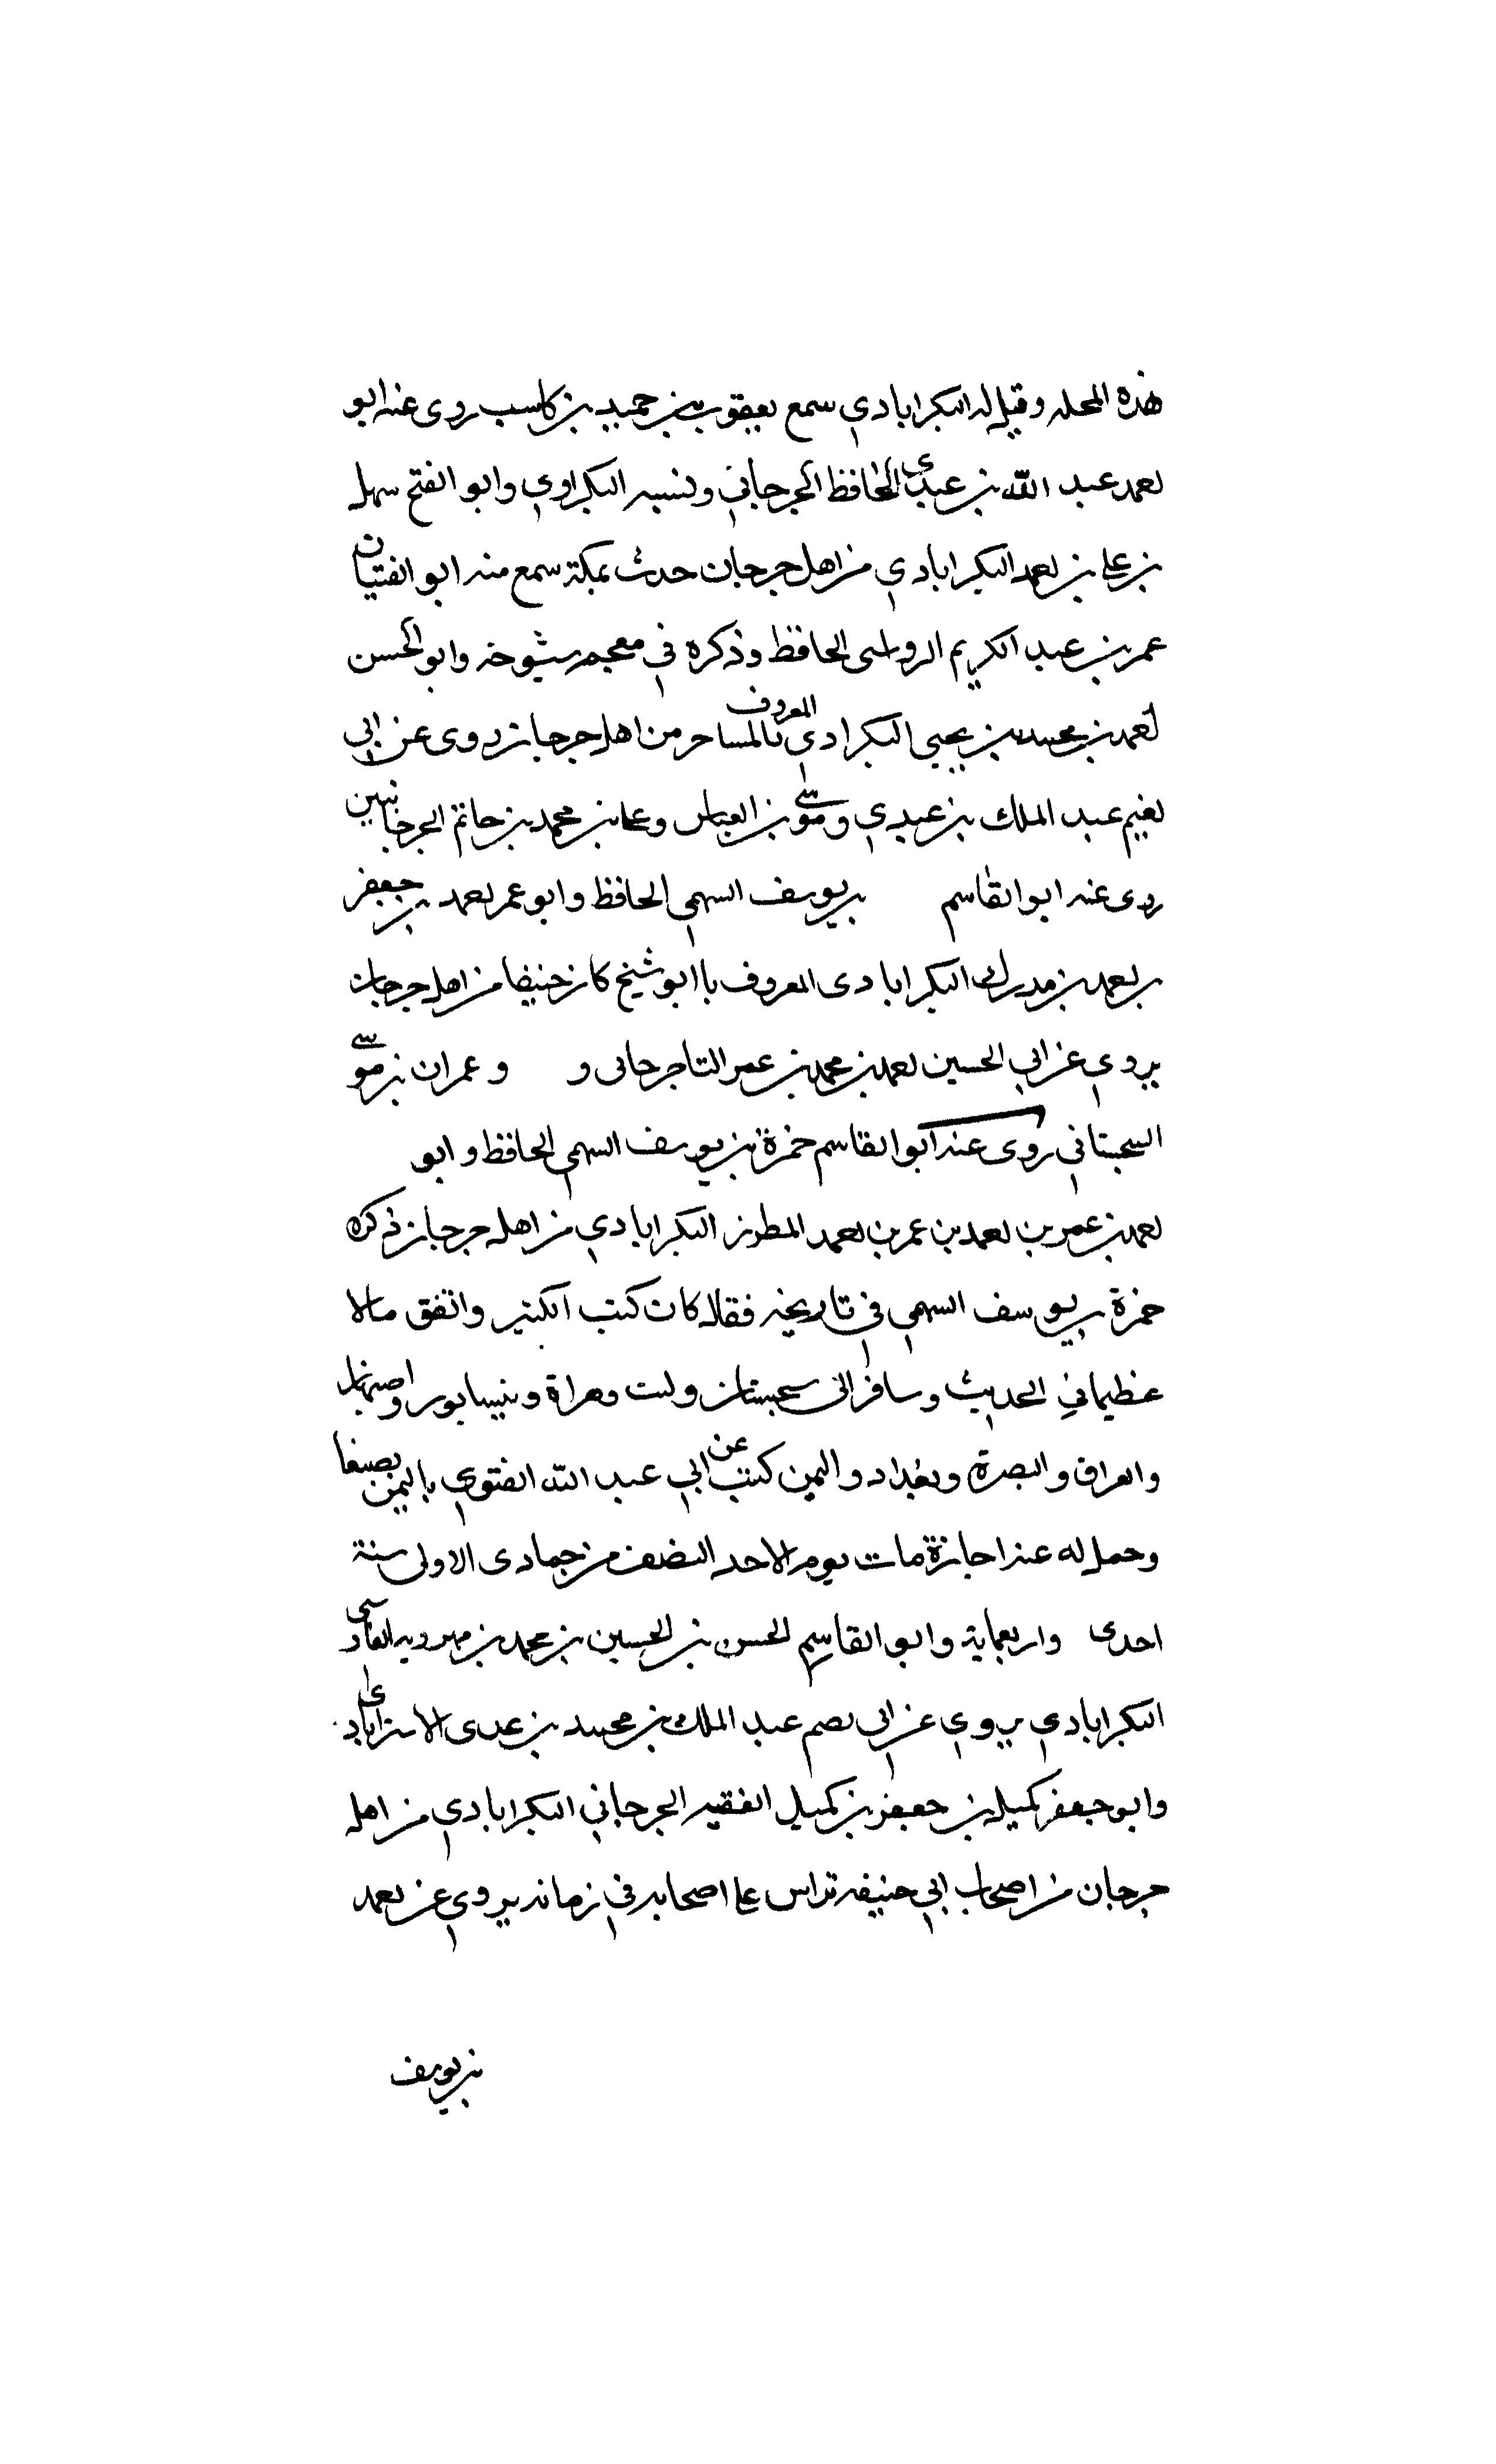 هذه المحله وقيل له البكراباذي سمع يعقوب بن حميد بن كاسب روى عنه ابو
احمد عبد الله بن عدي الحافظ الجرجاني ونسبه البكراوي وابو الفتح سهل
بن علي بن احمد البكرابادي من اهل جرجان حدث بمكة سمع منه ابو الفتيان
عمر بن عبد الكريم الرواسى الحافظ وذكره في معجم شيوخه وابو الحسن
احمد بن محمد بن يحيى البكرادي المعروف بالمساحر من اهل جرجان روى عن ابي
نعيم عبد الملك بن عدي وموسى بن العباس وعلي بن محمد بن حاتم الجرجانيين
روى عنه ابو القاسم بن يوسف السهمي الحافظ وابو عمر احمد بن جعفر
بن احمد بن مدرك البكرابادى المعروف با ابو شيخ كان حنيفا من اهل جرجان
يروي عن ابي الحسين احمد بن محمد بن عمر التاجرجانى و وعمران بن موسى
السجستاني روى عنه ابو القاسم حمزة بن يوسف السهمي الحافظ وابو
احمد بن عمر بن احمد بن عمر بن احمد المطرز البكرابادي من اهل جرجان ذكره
حمزة بن يوسف السهمي في تاريخه فقال كان كتب الكثير وانفق مالا
عظيما في الحديث وسافر الى سجستان وبست وهراة ونيسابور واصبهان
والعراق والبصرة وبغداد واليمن كتب عن ابي عبد الله النقوي باليمن بصنعا
وحمل له عنه اجازة مات يوم الاحد النصف من جمادى الاولى سنة
احدى واربعماية وابو القاسم الحسن بن الحسين بن محمد بن مهرويه الفارسي
البكرابادي يروي عن ابي نعيم عبد الملك بن محمد بن عدى الاستراباذى
وابو جعفر كميل بن جعفر بن كميل الفقيه الجرجاني البكرابادي من اهل
جرجان من اصحاب ابي حنيفه تراس على اصحابه في زمانه يروي عن احمد
بن يوسف